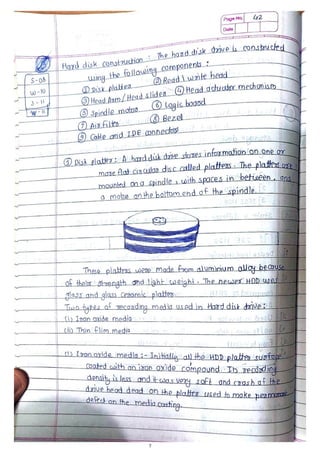 Page No. 42
Date
S-08
W-10
S-11
W-11
Hard disk construction : The hard disk drive is constructed
using the following components :
① Disk platter ② Read / write head
③ Head Arm / Head slider ④ Head actuator mechanism
⑤ Spindle motor ⑥ Logic board
⑦ Air filter ⑧ Bezel
⑨ Cable and IDE connector
① Disk platter : A hard disk drive stores information on one or
more flat circular disc called platters. The platters are
mounted on a spindle, with spaces in between, and
a motor on the bottom end of the spindle.
These platters were made from aluminium alloy because
of their strength and light weight. The newer HDD uses
glass and glass ceramic platter
Two types of recording media used in Hard disk drive :
(i) Iron oxide media
(ii) Thin film media
(i) Iron oxide media :- Initially all the HDD platter surface
coated with an iron oxide compound. In recording
density is less and it was very soft and crash of the
drive head on the platter used to make permanent
defect on the media coating.